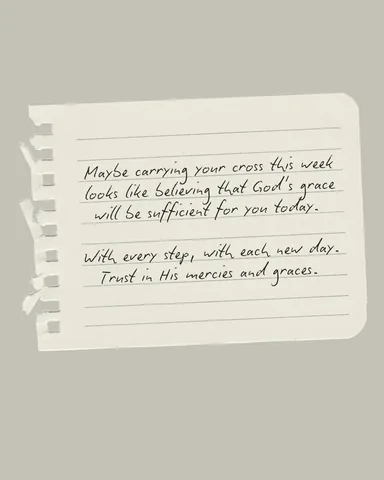 Maybe carrying your cross this week
looks like believing that God's grace
will be sufficient for you today.
With every step, with each new day.
Trust in His mercies and graces.